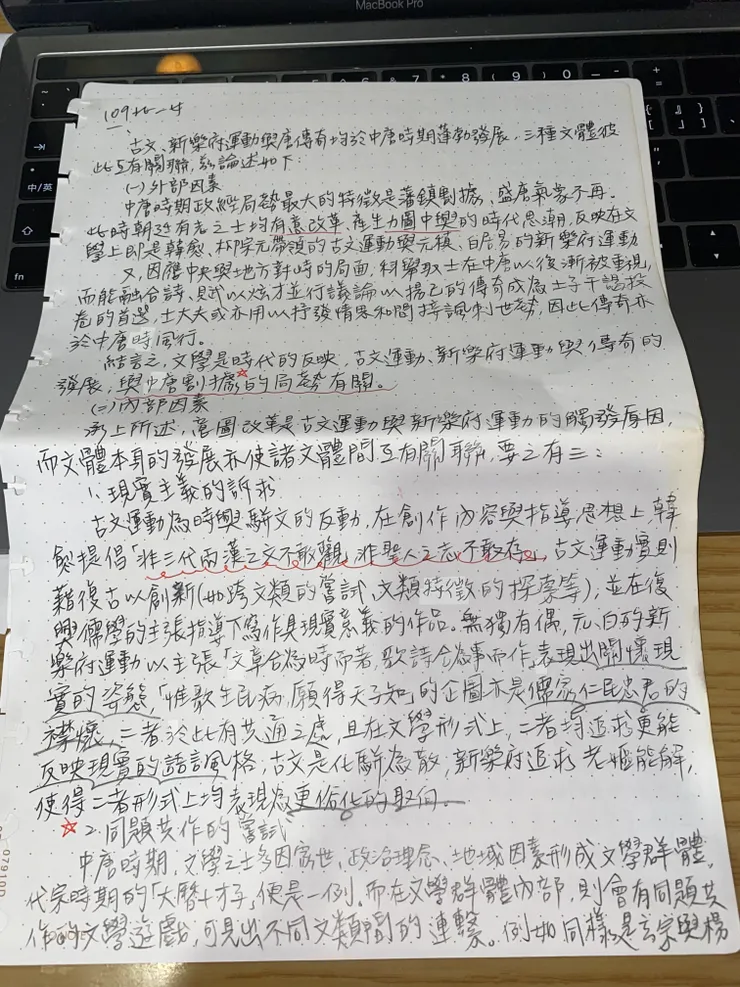 MacBook Pro
中/英
fn
一、
古文、新樂府運動與唐傳奇均於中唐時期蓬勃發展,三種文體彼
此互有關聯,茲論述如下:
(一)外部因素
中唐時期政經局勢最大的特徵是藩鎮割據、盛唐氣象不再。
此時朝廷有志之士均有意改革,產生力圖中興的時代思潮,反映在文
學上即是韓愈、柳宗元帶領的古文運動與元稹、白居易的新樂府運動
又,因應中央與地方對峙的局面,科舉取士在中唐以後漸被重視,
而能融合詩、賦以炫才並行議論以揚己的傳奇成為士子干謁投
卷的首選,士大夫或亦用以抒發情思和間接諷刺世勢,因此傳奇亦
於中唐時風行。
結言之,文學是時代的反映,古文運動、新樂府運動與傳奇的
發展,與中唐割據的局勢有關。
(二)內部因素
承上所述,意圖改革是古文運動與新樂府運動的觸發原因,
而文體本身的發展亦使諸文體間互有關聯,要之有三:
1.現實主義的訴求
古文運動為時興駢文的反動,在創作內容與指導思想上,韓
愈提倡「非三代兩漢之文不敢觀,非聖人之志不敢存」,古文運動實則
藉復古以創新(如跨文類的嘗試、文類特徵的探索等),並在復
興儒學的主張指導下寫作具現實意義的作品。無獨有偶,元、白的新
樂府運動以主張「文章合為時而著,歌詩合為事而作」表現出關懷現
實的姿態,「惟歌生民病,願得天子知」的企圖亦是儒家仁民忠君的
襟懷,二者於此有共通之處,且在文學形式上,二者均追求更能
反映現實的語言風格,古文是化駢為散,新樂府追求老嫗能解,
使得二者形式上均表現為更俗化的取向。
2.同題共作的嘗試
中唐時期,文學之士多因家世、政治理念、地域因素形成文學群體,
代宗時期的「大曆十才子」便是一例,而在文學群體內部,則會有同題共
作的文學遊戲,可見出不同文類間的連繫。例如同樣是玄宗與楊